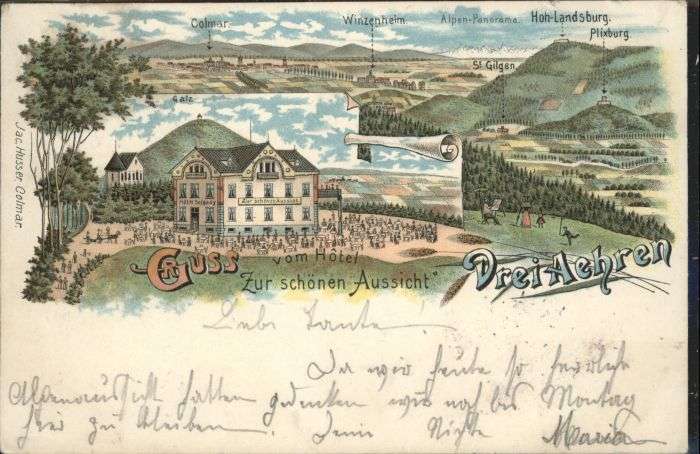 Colmar. Winzenheim. Alpen-Panorama. Hoh-Landsburg.
Plixburg.
St Gilgen.
Galz
Jac. Husser Colmar.
Zur schönen Aussicht
GRUSS vom Hôtel "Zur schönen Aussicht" Drei Aehren
Liebe Tante!
Da wir heute so herrliche
Alpenaussicht hatten gedenken wir noch bis Montag
hier zu bleiben. Deine Nichte Maria